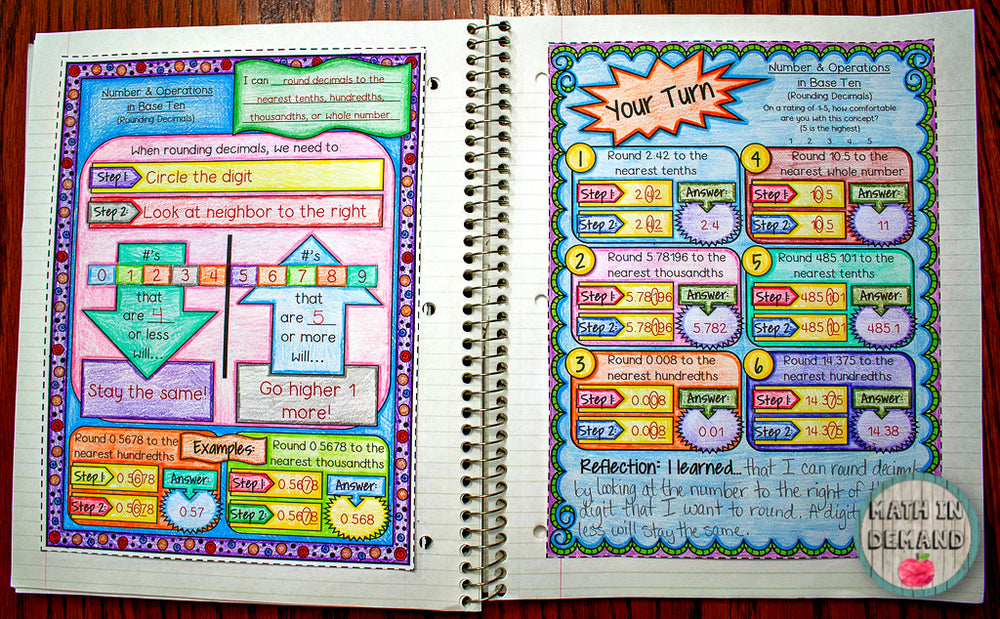 Number & Operations
in Base Ten
(Rounding Decimals)
I can round decimals to the
nearest tenths, hundredths,
thousandths, or whole number.
When rounding decimals, we need to:
Step 1: Circle the digit
Step 2: Look at neighbor to the right
#'s
#'s
0 1 2 3 4 5 6 7 8 9
that
are 4
or less
will...
that
are 5
or more
will...
Stay the same!
Go higher 1
more!
Examples:
Round 0.5678 to the
nearest hundredths
Step 1: 0.5678
Step 2: 0.5678
Answer:
0.57
Round 0.5678 to the
nearest thousandths
Step 1: 0.5678
Step 2: 0.5678
Answer:
0.568
Your Turn
Number & Operations
in Base Ten
(Rounding Decimals)
On a rating of 1-5, how comfortable
are you with this concept?
(5 is the highest)
1 2 3 4 5
1 Round 2.42 to the
nearest tenths
Step 1: 2.42
Step 2: 2.42
Answer:
2.4
4 Round 10.5 to the
nearest whole number
Step 1: 10.5
Step 2: 10.5
Answer:
11
2 Round 5.78196 to the
nearest thousandths
Step 1: 5.78196
Step 2: 5.78196
Answer:
5.782
5 Round 485.101 to the
nearest tenths
Step 1: 485.101
Step 2: 485.101
Answer:
485.1
3 Round 0.008 to the
nearest hundredths
Step 1: 0.008
Step 2: 0.008
Answer:
0.01
6 Round 14.375 to the
nearest hundredths
Step 1: 14.375
Step 2: 14.375
Answer:
14.38
Reflection: I learned... that I can round
by looking at the number to the right of
digit that I want to round. A digit
less will stay the same.
MATH IN
DEMAND